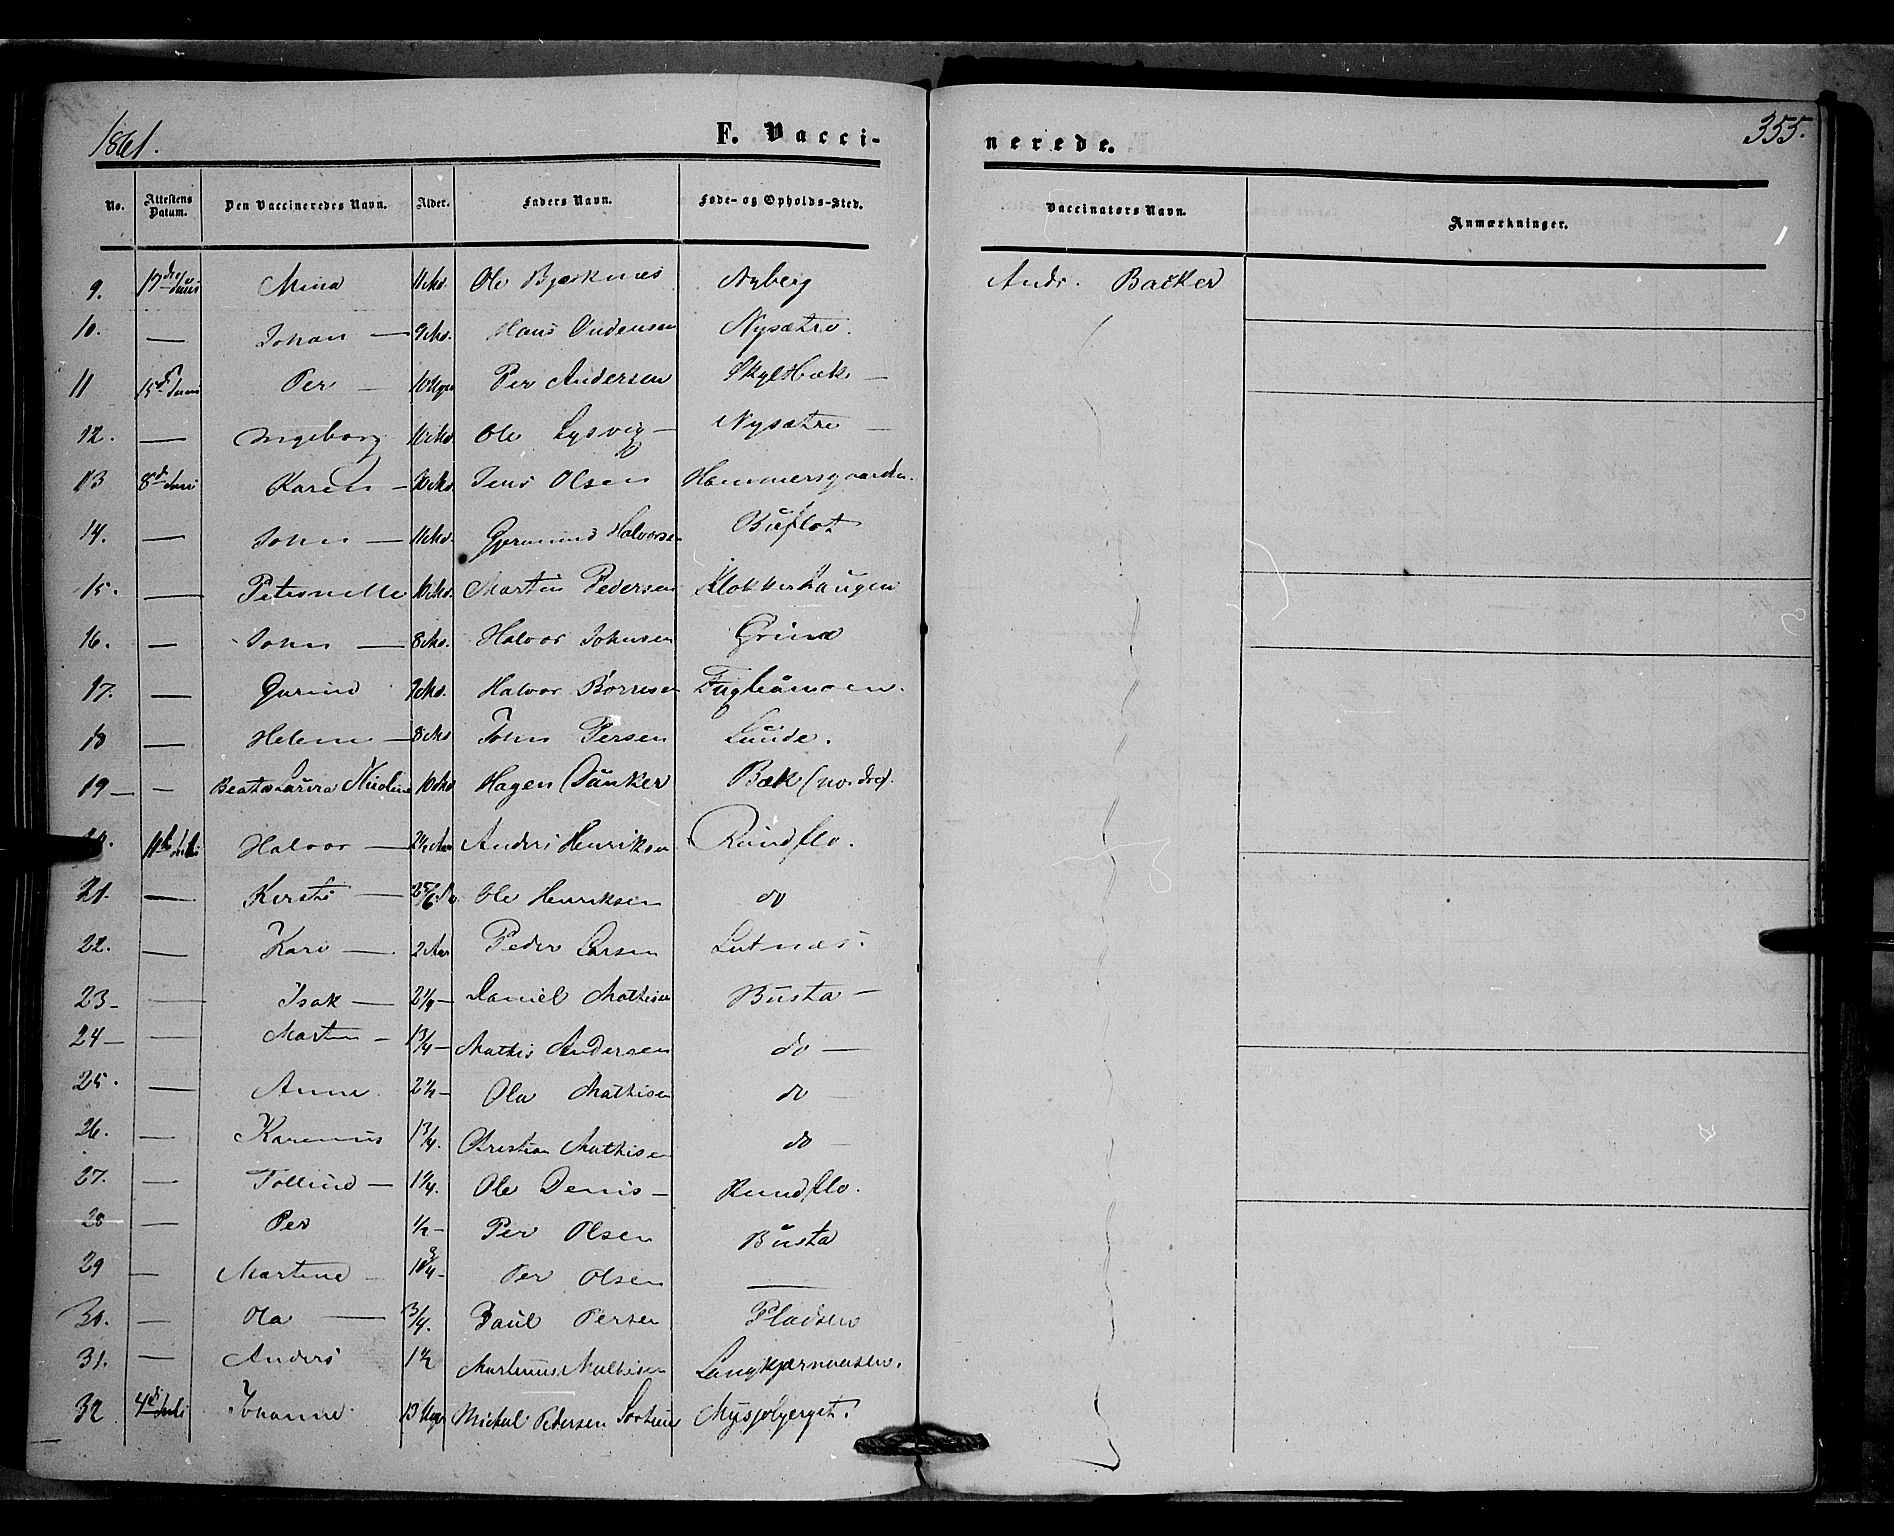 1861.
F. Vacci-
nerede.
355.
No. Attestens Datum. Den Vaccineredes Navn. Alder. Faders Navn. Føde- og Opholds-Sted. Vaccinatørs Navn. Anmærkninger.
9. 17de Juni Mina 11 Md. Ole Bjørknæs Nyberg Andr. Backer
10. — Johan — 9 Md. Hans Oudensen Nysætre.
11 15de Juni Per — 10 Uger Per Andersen Skylbæk —
12. — Ingeborg 10 Md. Ole Lysvig — Nysætre —
13 8de Juni Karen — 10 Md. Jens Olsen Hammersgaarden.
14. — John — 11 Md. Gjermund Halvorsen Buflot
15. — Petronelle 10 Md. Martin Pedersen Klokkerhaugen
16. — John — 8 Md. Halvor Johnsen Grina
17. — Gurine 9 Md. Halvor Børresen Fuglaamoen.
18 — Helene — 8 Md John Persen Lunde.
19 — — Beata Laura Nicoline 10 Md Hagen Dunker Bæk (nordre).
20. 11te Juli Halvor — 2½ Aar Anders Henriksen Rundflo.
21. — Kersti — 2 5/6 do Ole Henriksen do
22. — Kari — 2 Aar Peder Larsen Lutnæs.
23 — — Isak — 2¼ — Daniel Mathisen Busta —
24 — — Martin — 1¾ — Mathis Andersen do —
25. — Anne 2½ — Ola Mathisen do —
26. — Karenus 1¾. Christian Mathisen do —
27. — Tolline — 1¼. Ole Denis — Rundflo.
28 — Per ½ — Per Olsen Busta
29 — Martine — Per Olsen —
30. — Ola — ¾. Paul Persen Pladsen
31. — Anders 1½ Martinus Mathisen
32 4de Juli Johanne 13 Uger Michel Pedersen